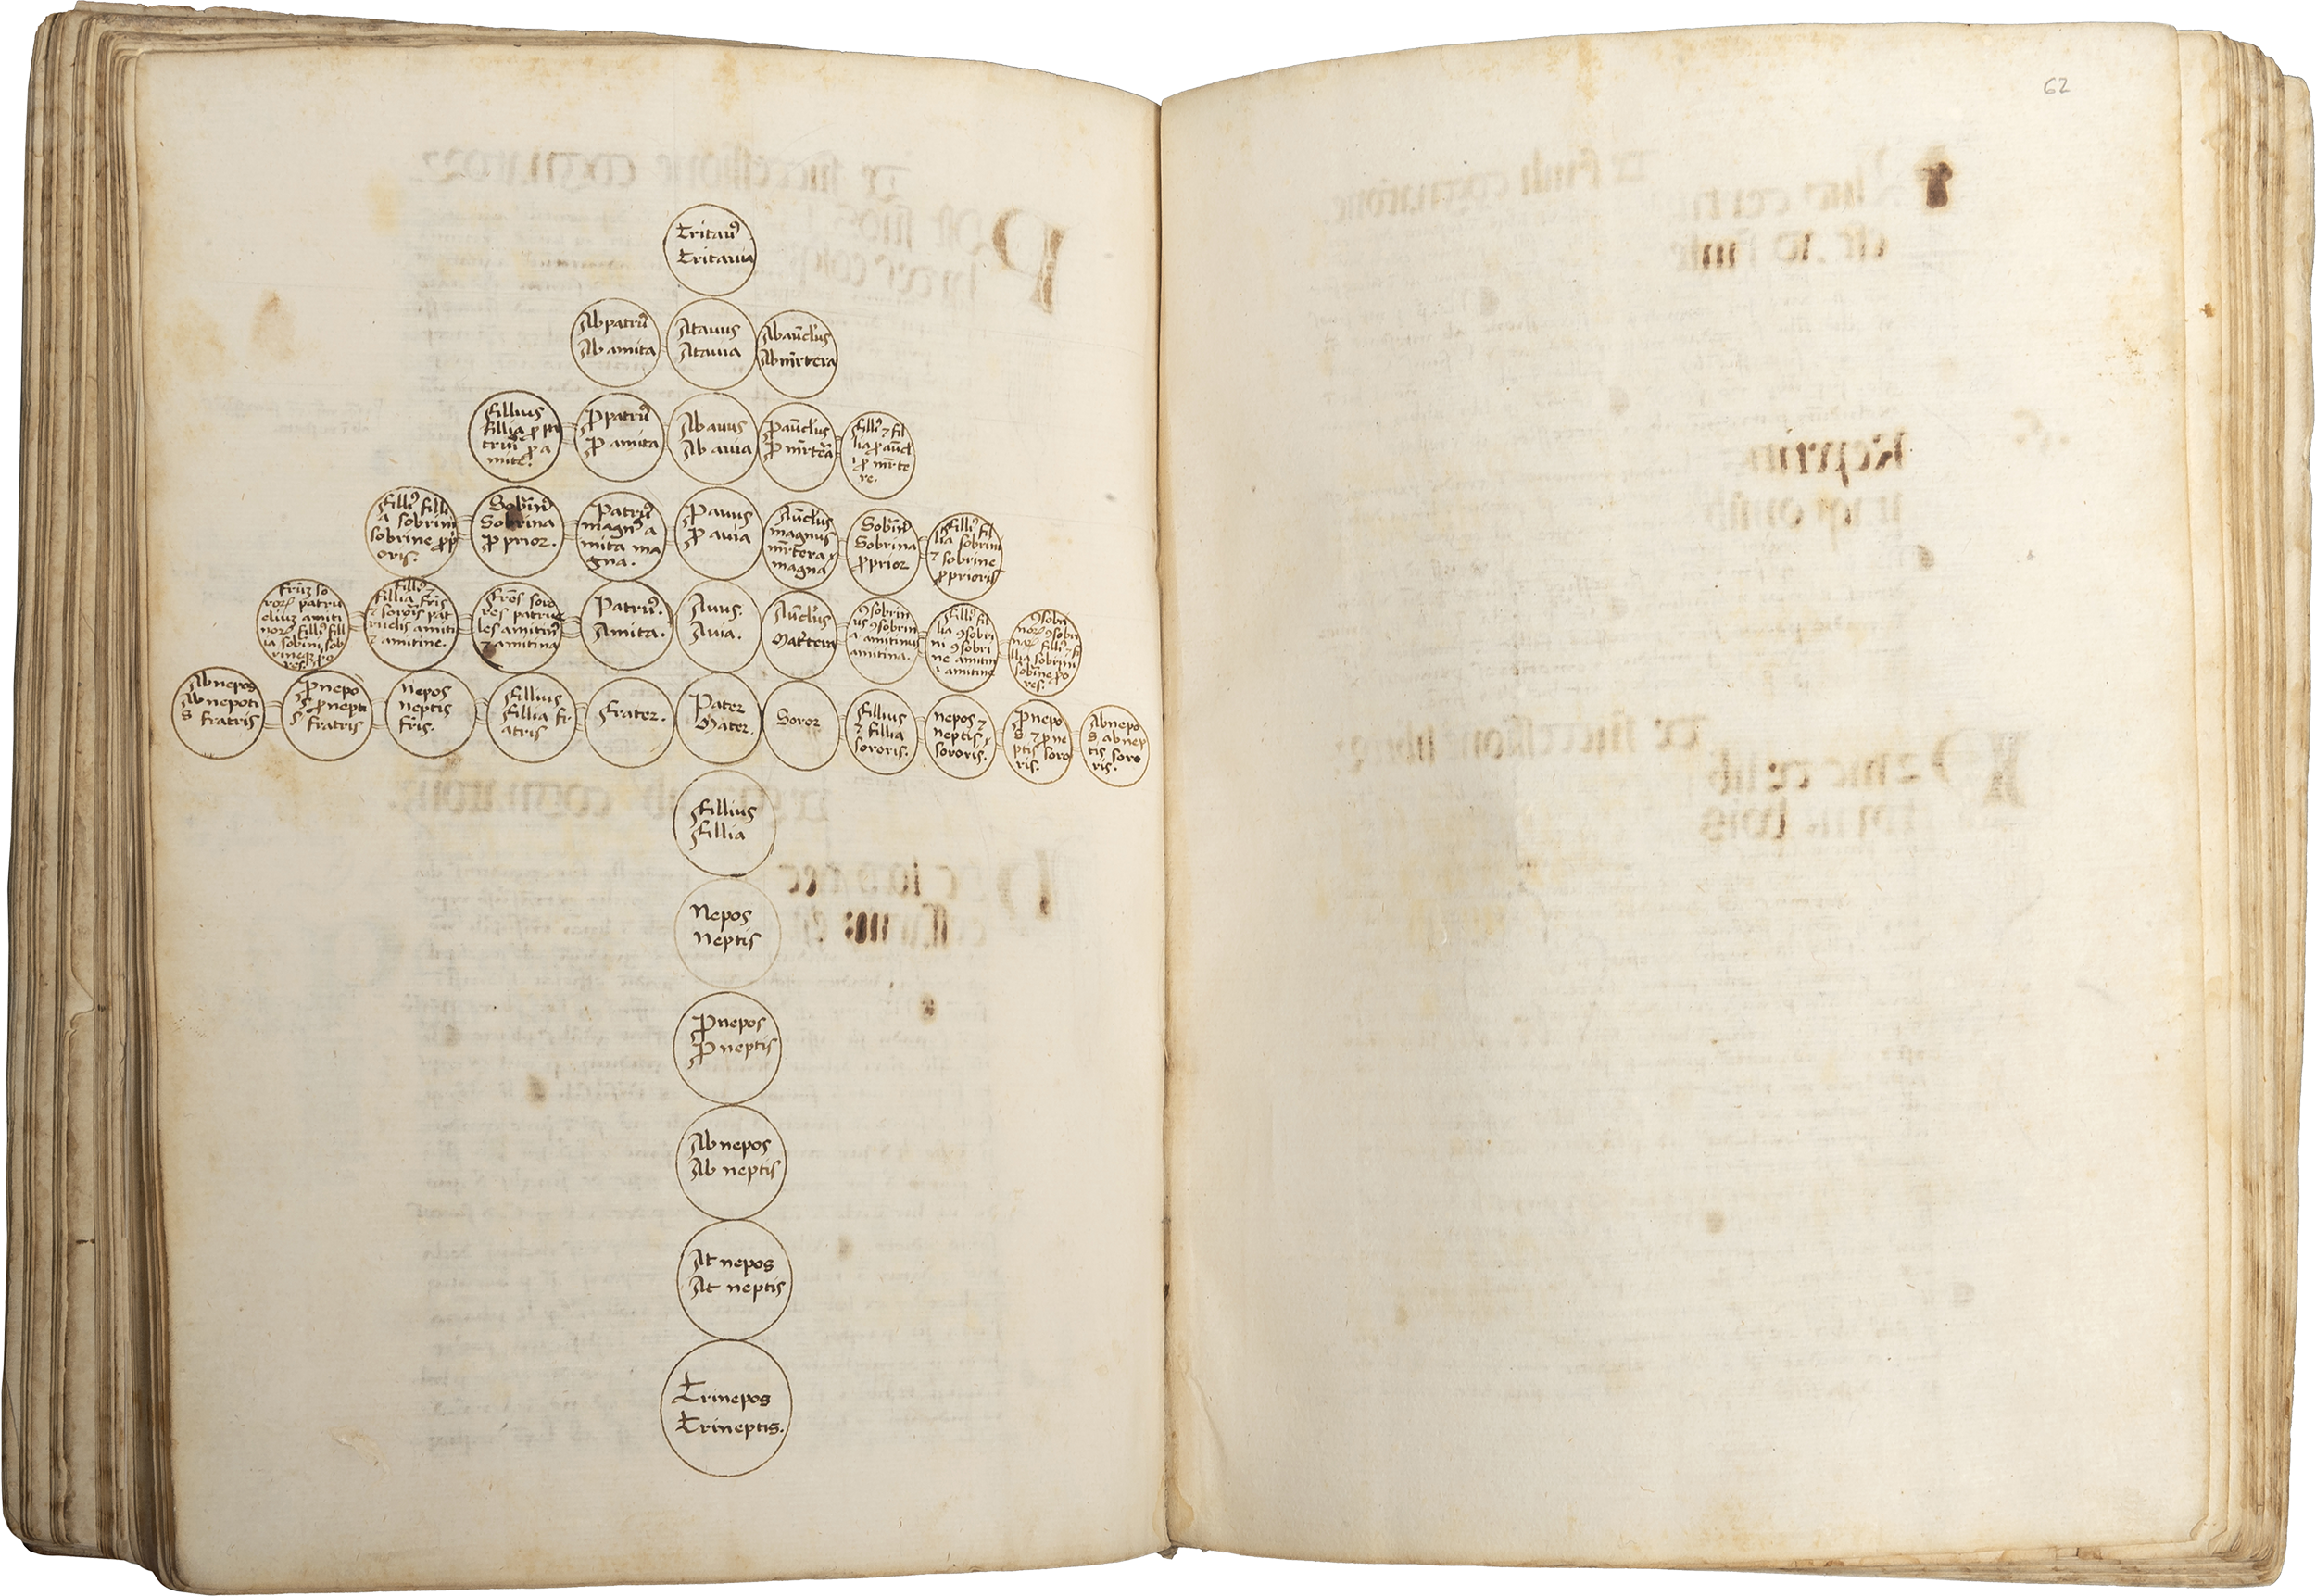 62
Tritauꝰ
Tritauia
Abpatruꝰ
Ab amita
Atauus
Atauia
Abaūclus
Abmr̄tera
Fillius
Fillia ꝓ pa
trui ꝓ a
mite.
Ꝓpatruꝰ
Ꝓ amita
Ab auus
Ab auia
Ꝓaūclus
Ꝓ mr̄tera
Filliꝰ ⁊ fil
lia ꝓ aūcl
i ꝓ mr̄te
re.
Filliꝰ filli
a sobrini
sobrine ꝓpri
oris.
Sobrinꝰ
Sobrina
ꝓprior.
Patruꝰ
magnꝰ a
mita ma
gna.
Ꝓauus
Ꝓ auia
Aūclus
magnus
mr̄tera
magna
Sobrinꝰ
Sobrina
ꝓprior
Filliꝰ fil
lia sobrini
⁊ sobrine
ꝓprioris
Filliꝰ
Fillia fr̄is
⁊ soroīs pat
ruelis amiti
⁊ amitine.
Fr̄es soro
res patrue
les amitinꝰ
⁊ amitina
Patruꝰ.
Amita.
Auus.
Auia.
Aūclus
Mat̄tera
ꝯsobrin
us ꝯsobrin
a amitinus
amitina.
Filliꝰ fil
lia ꝯsobri
ni ꝯsobri
ne amitin
i amitine
Abnepos
Ab nepoti
s fratris
Ꝓnepo
s ꝓnepti
s fratris
Nepos
neptis
fr̄is.
Fillius
Fillia fr
atris
Frater.
Pater
Mater.
Soror
Fillius
⁊ fillia
sororis.
nepos ⁊
neptis
sororis.
Ꝓnepo
s ⁊ ꝓne
ptis soro
ris.
Abnepo
s abnep
tis soro
ris.
Fillius
Fillia
Nepos
Neptis
Ꝓnepos
Ꝓneptis
Ab nepos
Ab neptis
At nepos
At neptis
Trinepos
Trineptis.